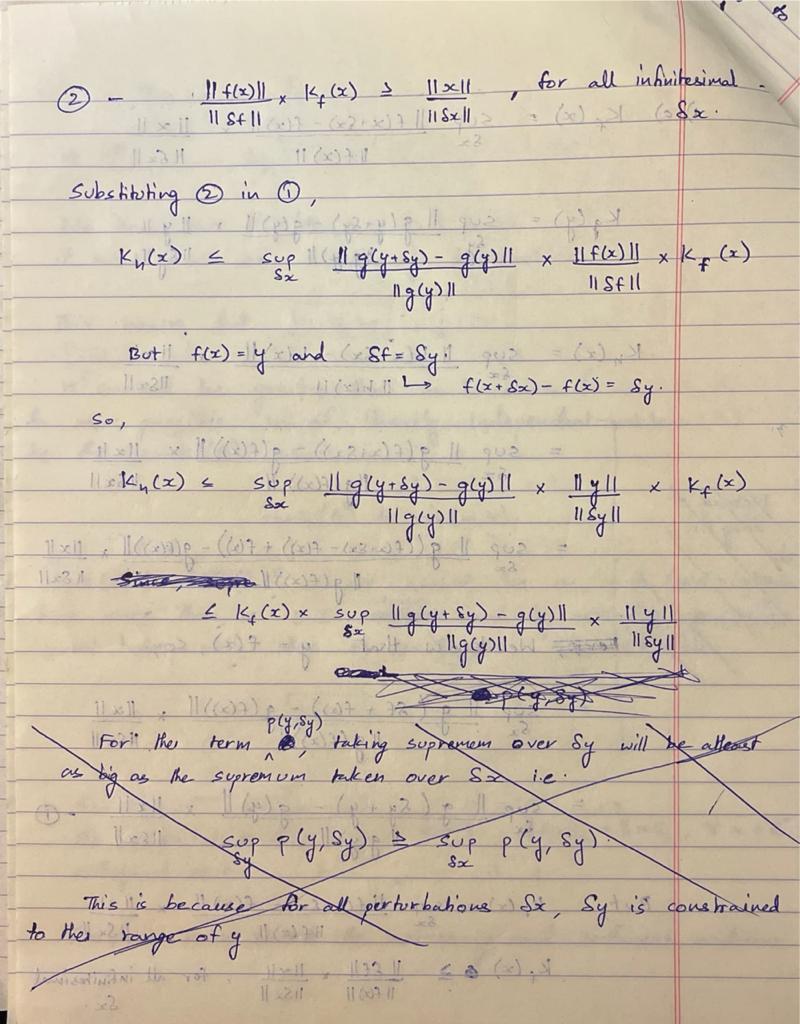 ② - ||f(x)|| / ||δf|| × K_f(x) ≥ ||x|| / ||δx|| , for all infinitesimal δx.
Substituting ② in ①,
K_h(x) ≤ sup_δx ||g(y+δy) - g(y)|| / ||g(y)|| × ||f(x)|| / ||δf|| × K_f(x)
But f(x) = y and δf = δy.
↳ f(x+δx) - f(x) = δy.
so,
K_h(x) ≤ sup_δx ||g(y+δy) - g(y)|| / ||g(y)|| × ||y|| / ||δy|| × K_f(x)
≤ K_f(x) × sup_δx ||g(y+δy) - g(y)|| / ||g(y)|| × ||y|| / ||δy||
p(y,δy)
For the term p(y,δy), taking supremem over δy will be atleast
as big as the supremum taken over δx i.e.
sup_δy p(y,δy) ≥ sup_δx p(y,δy)
This is because for all perturbations δx, δy is constrained
to the range of y